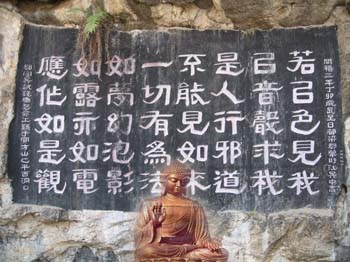 若㠯色見我
㠯音聲求我
是人行邪道
不能見如来
一切有為法
如夢幻泡影
如露亦如電
應作如是觀